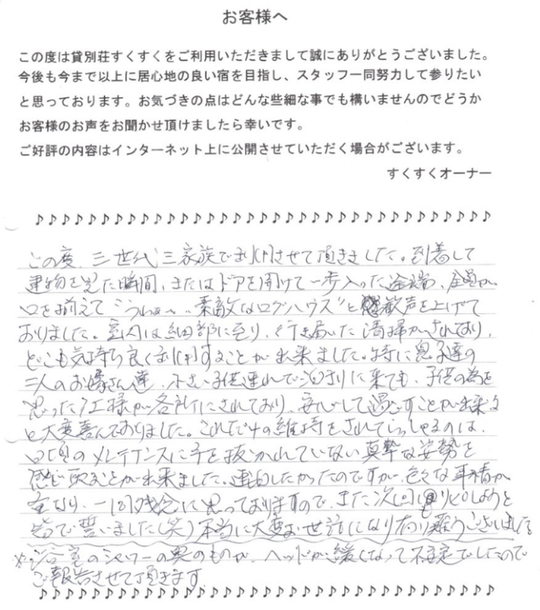 お客様へ
この度は貸別荘すくすくをご利用いただきまして誠にありがとうございました。
今後も今まで以上に居心地の良い宿を目指し、スタッフ一同努力して参りたい
と思っております。お気づきの点はどんな些細な事でも構いませんのでどうか
お客様のお声をお聞かせ頂けましたら幸いです。
ご好評の内容はインターネット上に公開させていただく場合がございます。
すくすくオーナー
♪♪♪♪♪♪♪♪♪♪♪♪♪♪♪♪♪♪♪♪♪♪♪♪♪♪♪♪♪♪♪♪♪
この度、三世代三家族でお利用させて頂きました。到着して
建物を見た瞬間、またはドアを開けて一歩入った途端、全員が
口を揃えて"うわぁ〜、素敵なログハウス"と歓声を上げて
おりました。室内は細部に至り、行き届いた清掃がされており、
どこも気持ち良く利用することが出来ました。特に息子達の
二人のお嫁さん達、小さい子供連れで泊まりに来ても、子供の為を
思った仕様が各所にされており、安心して過ごすことが出来ると
大変喜んでおりました。これだけの維持をされていらっしゃるのは、
日頃のメンテナンスに手を抜かれていない真摯な姿勢を
感じ取ることが出来ました。連泊したかったのですが、色々な事情が
重なり、一同残念に思っておりますので、また次回もリピしようと
皆で誓いました(笑)本当に大変お世話になり有り難うございました
※浴室のシャワーの奥のものが、ヘッドが緩くなって不安定でしたので
ご報告させて頂きます
♪♪♪♪♪♪♪♪♪♪♪♪♪♪♪♪♪♪♪♪♪♪♪♪♪♪♪♪♪♪♪♪♪